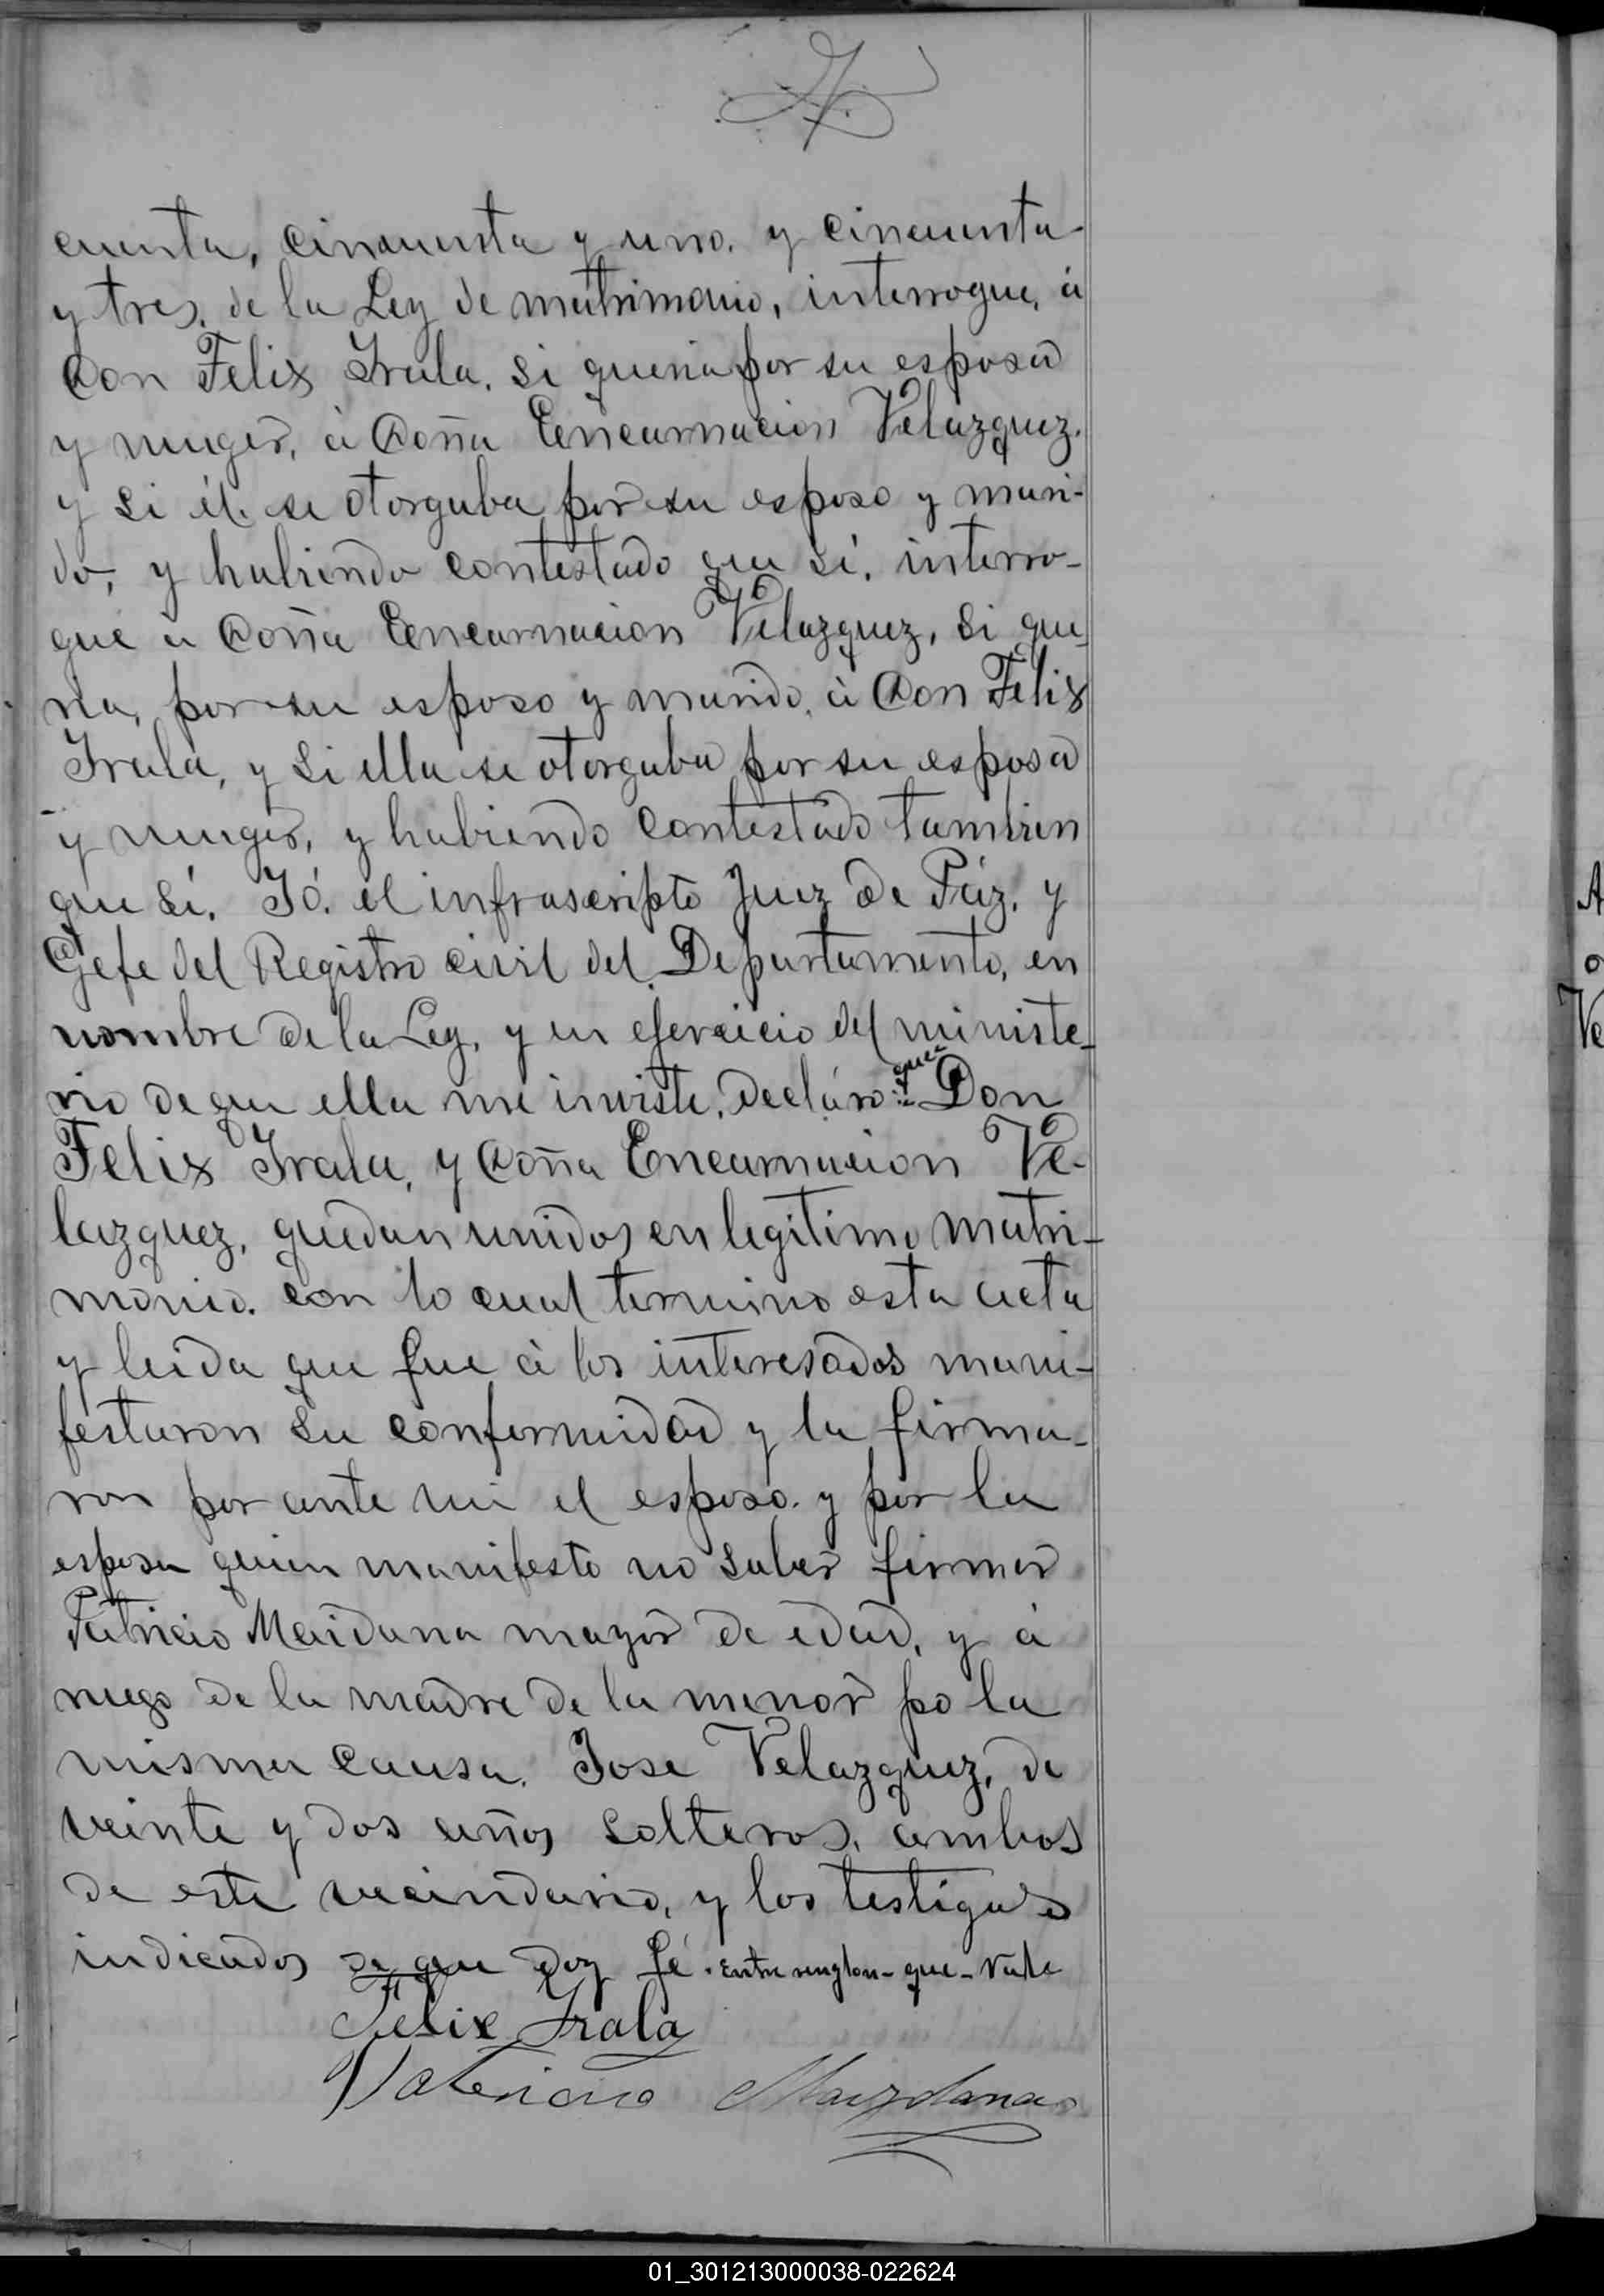 cuenta, cincuenta y uno. y cincuenta
y tres, de la Ley de matrimonio, interrogue, á
Don Felix Irala, si queria por su esposa
y muger, á Doña Encarnacion Velazquez.
y si él se otorgaba por su esposo y mari-
do, y habiendo contestado que sí, interro-
gue a Doña Encarnacion Velazquez, si que-
ria, por su esposo y marido, á Don Felix
Irala, y si ella se otorgaba por su esposa
y muger, y habiendo contestado tambien
que sí. Yó. el infrascripto Juez de Páz, y
Gefe del Registro civil del Departamento, en
nombre de la Ley, y en ejercicio del ministe-
rio de que ella me inviste, declaro: que Don
Felix Irala, y Doña Encarnacion Ve-
lazquez, quedan unidos en legitimo matri-
monio. con lo cual termino esta acta
y leida que fue á los interesados mani-
festaron su conformidad y la firma-
ron por ante mi el esposo. y por la
esposa quien manifesto no saber firmar
Patricio Maidana mayor de edad, y á
ruego de la madre de la menor po la
misma causa. Jose Velazquez, de
veinte y dos años solteros, ambos
de este vecindario, y los testigos
indicados de que doy fé. Entre renglon - que - Vale
Felix Irala
Maizdana
01_301213000038-022624